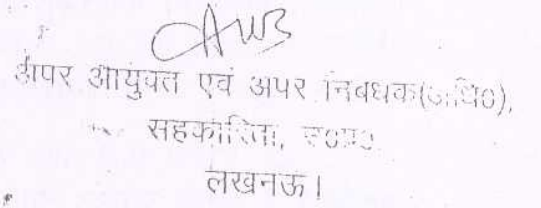 अपर आयुक्त एवं अपर निबंधक(अधि०),
सहकारिता, उ०प्र०
लखनऊ।